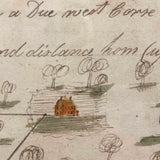 a Due west Corse
nd distance from